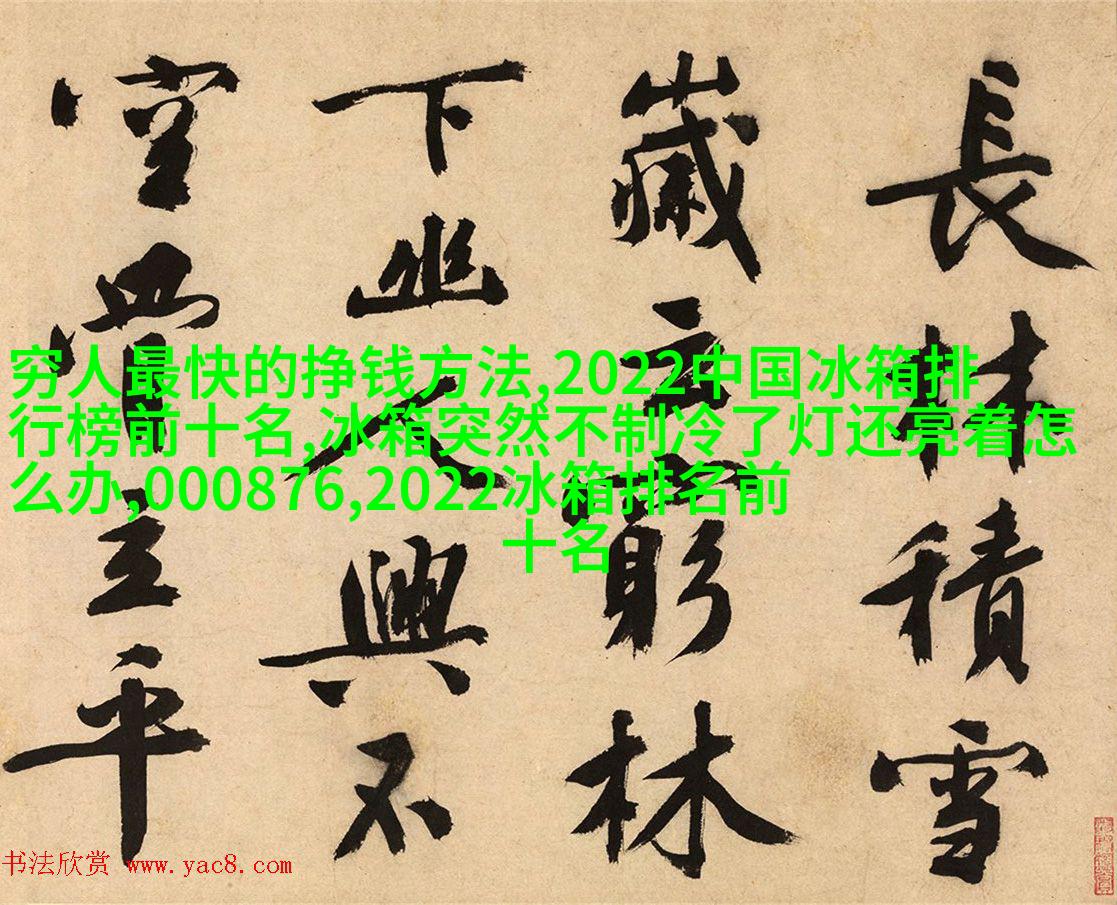 穷人最快的挣钱方法,2022中国冰箱排
行榜前十名,冰箱突然不制冷了灯还亮着怎
么办,000876,2022冰箱排名前
十名
長林積雪
歲云窮林
下幽人興不
立平
书法欣赏 www.yac8.com